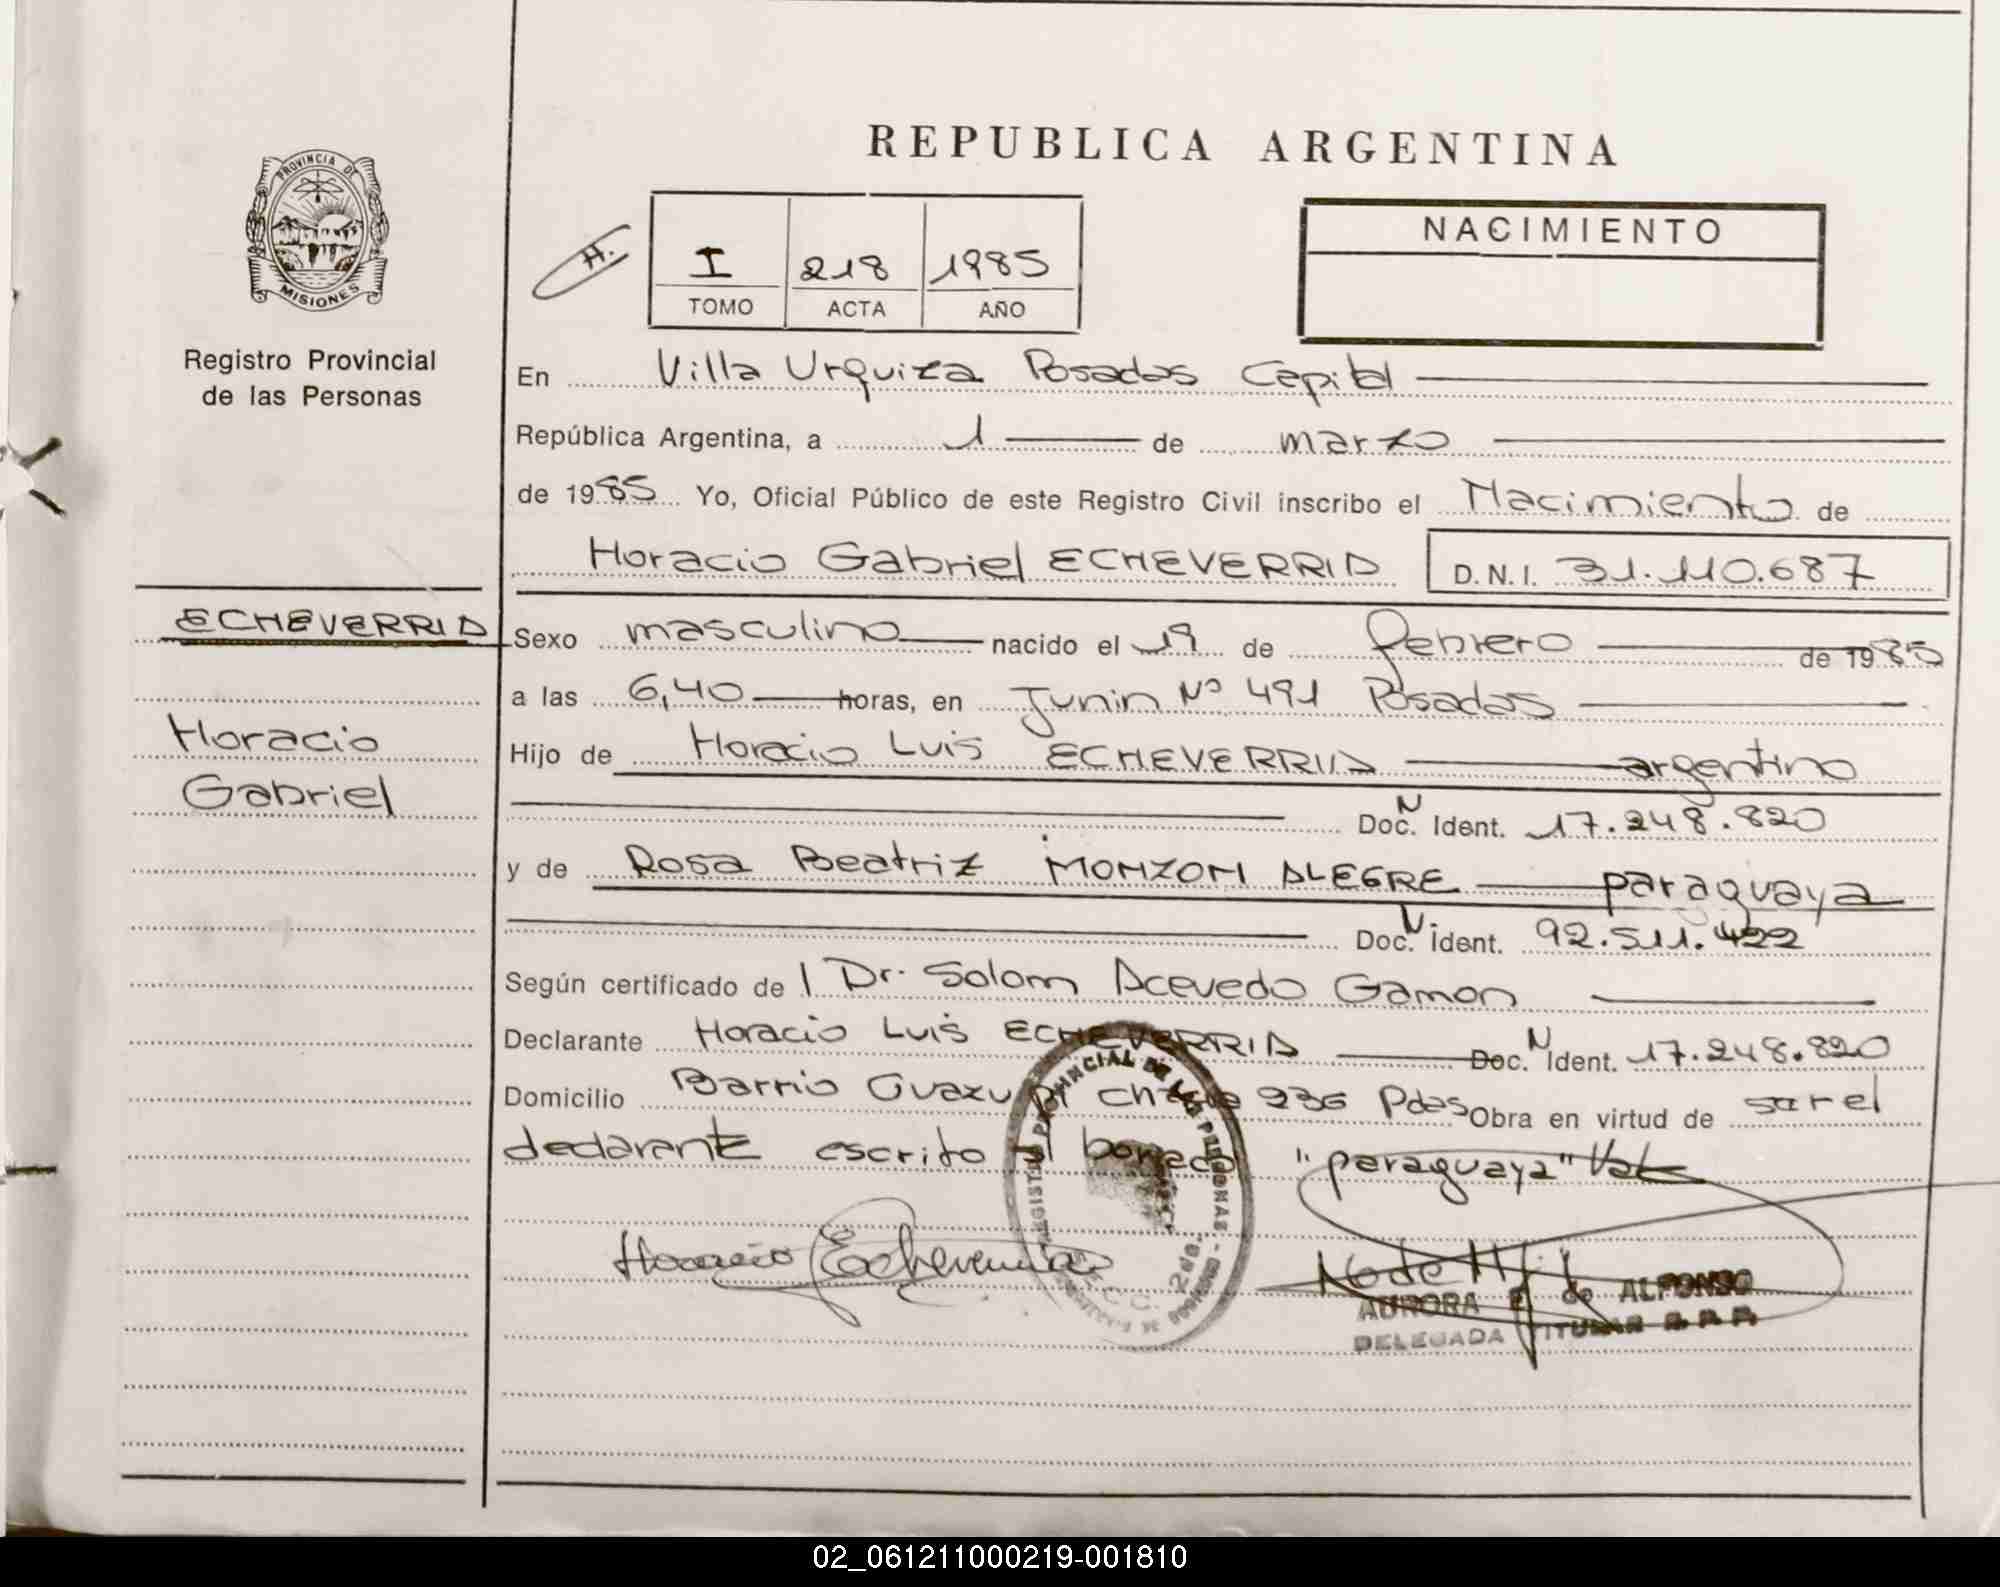 REPUBLICA ARGENTINA
PROVINCIA DE
MISIONES
Registro Provincial
de las Personas
H.
I 218 1985
TOMO ACTA AÑO
NACIMIENTO
En Villa Urquiza Posadas Capital
República Argentina, a 1 de marzo
de 1985 Yo, Oficial Público de este Registro Civil inscribo el Nacimiento de
Horacio Gabriel ECHEVERRIA D.N.I. 31.110.687
ECHEVERRIA
Horacio
Gabriel
Sexo masculino nacido el 19 de febrero de 1985
a las 6,40 horas, en Junin Nº 491 Posadas
Hijo de Horacio Luis ECHEVERRIA argentino
Doc. N Ident. 17.248.820
y de Rosa Beatriz MONZON ALEGRE paraguaya
Doc. N Ident. 92.511.422
Según certificado de Dr. Solom Acevedo Gamon
Declarante Horacio Luis ECHEVERRIA Doc. N Ident. 17.248.820
Domicilio Barrio Guazu Pi 236 Pdas Obra en virtud de ser el
declarante escrito s/ borrado "paraguaya" Vale
Horacio Echeverria
AURORA E. de ALFONSO
DELEGADA TITULAR R. P. P.
02_061211000219-001810